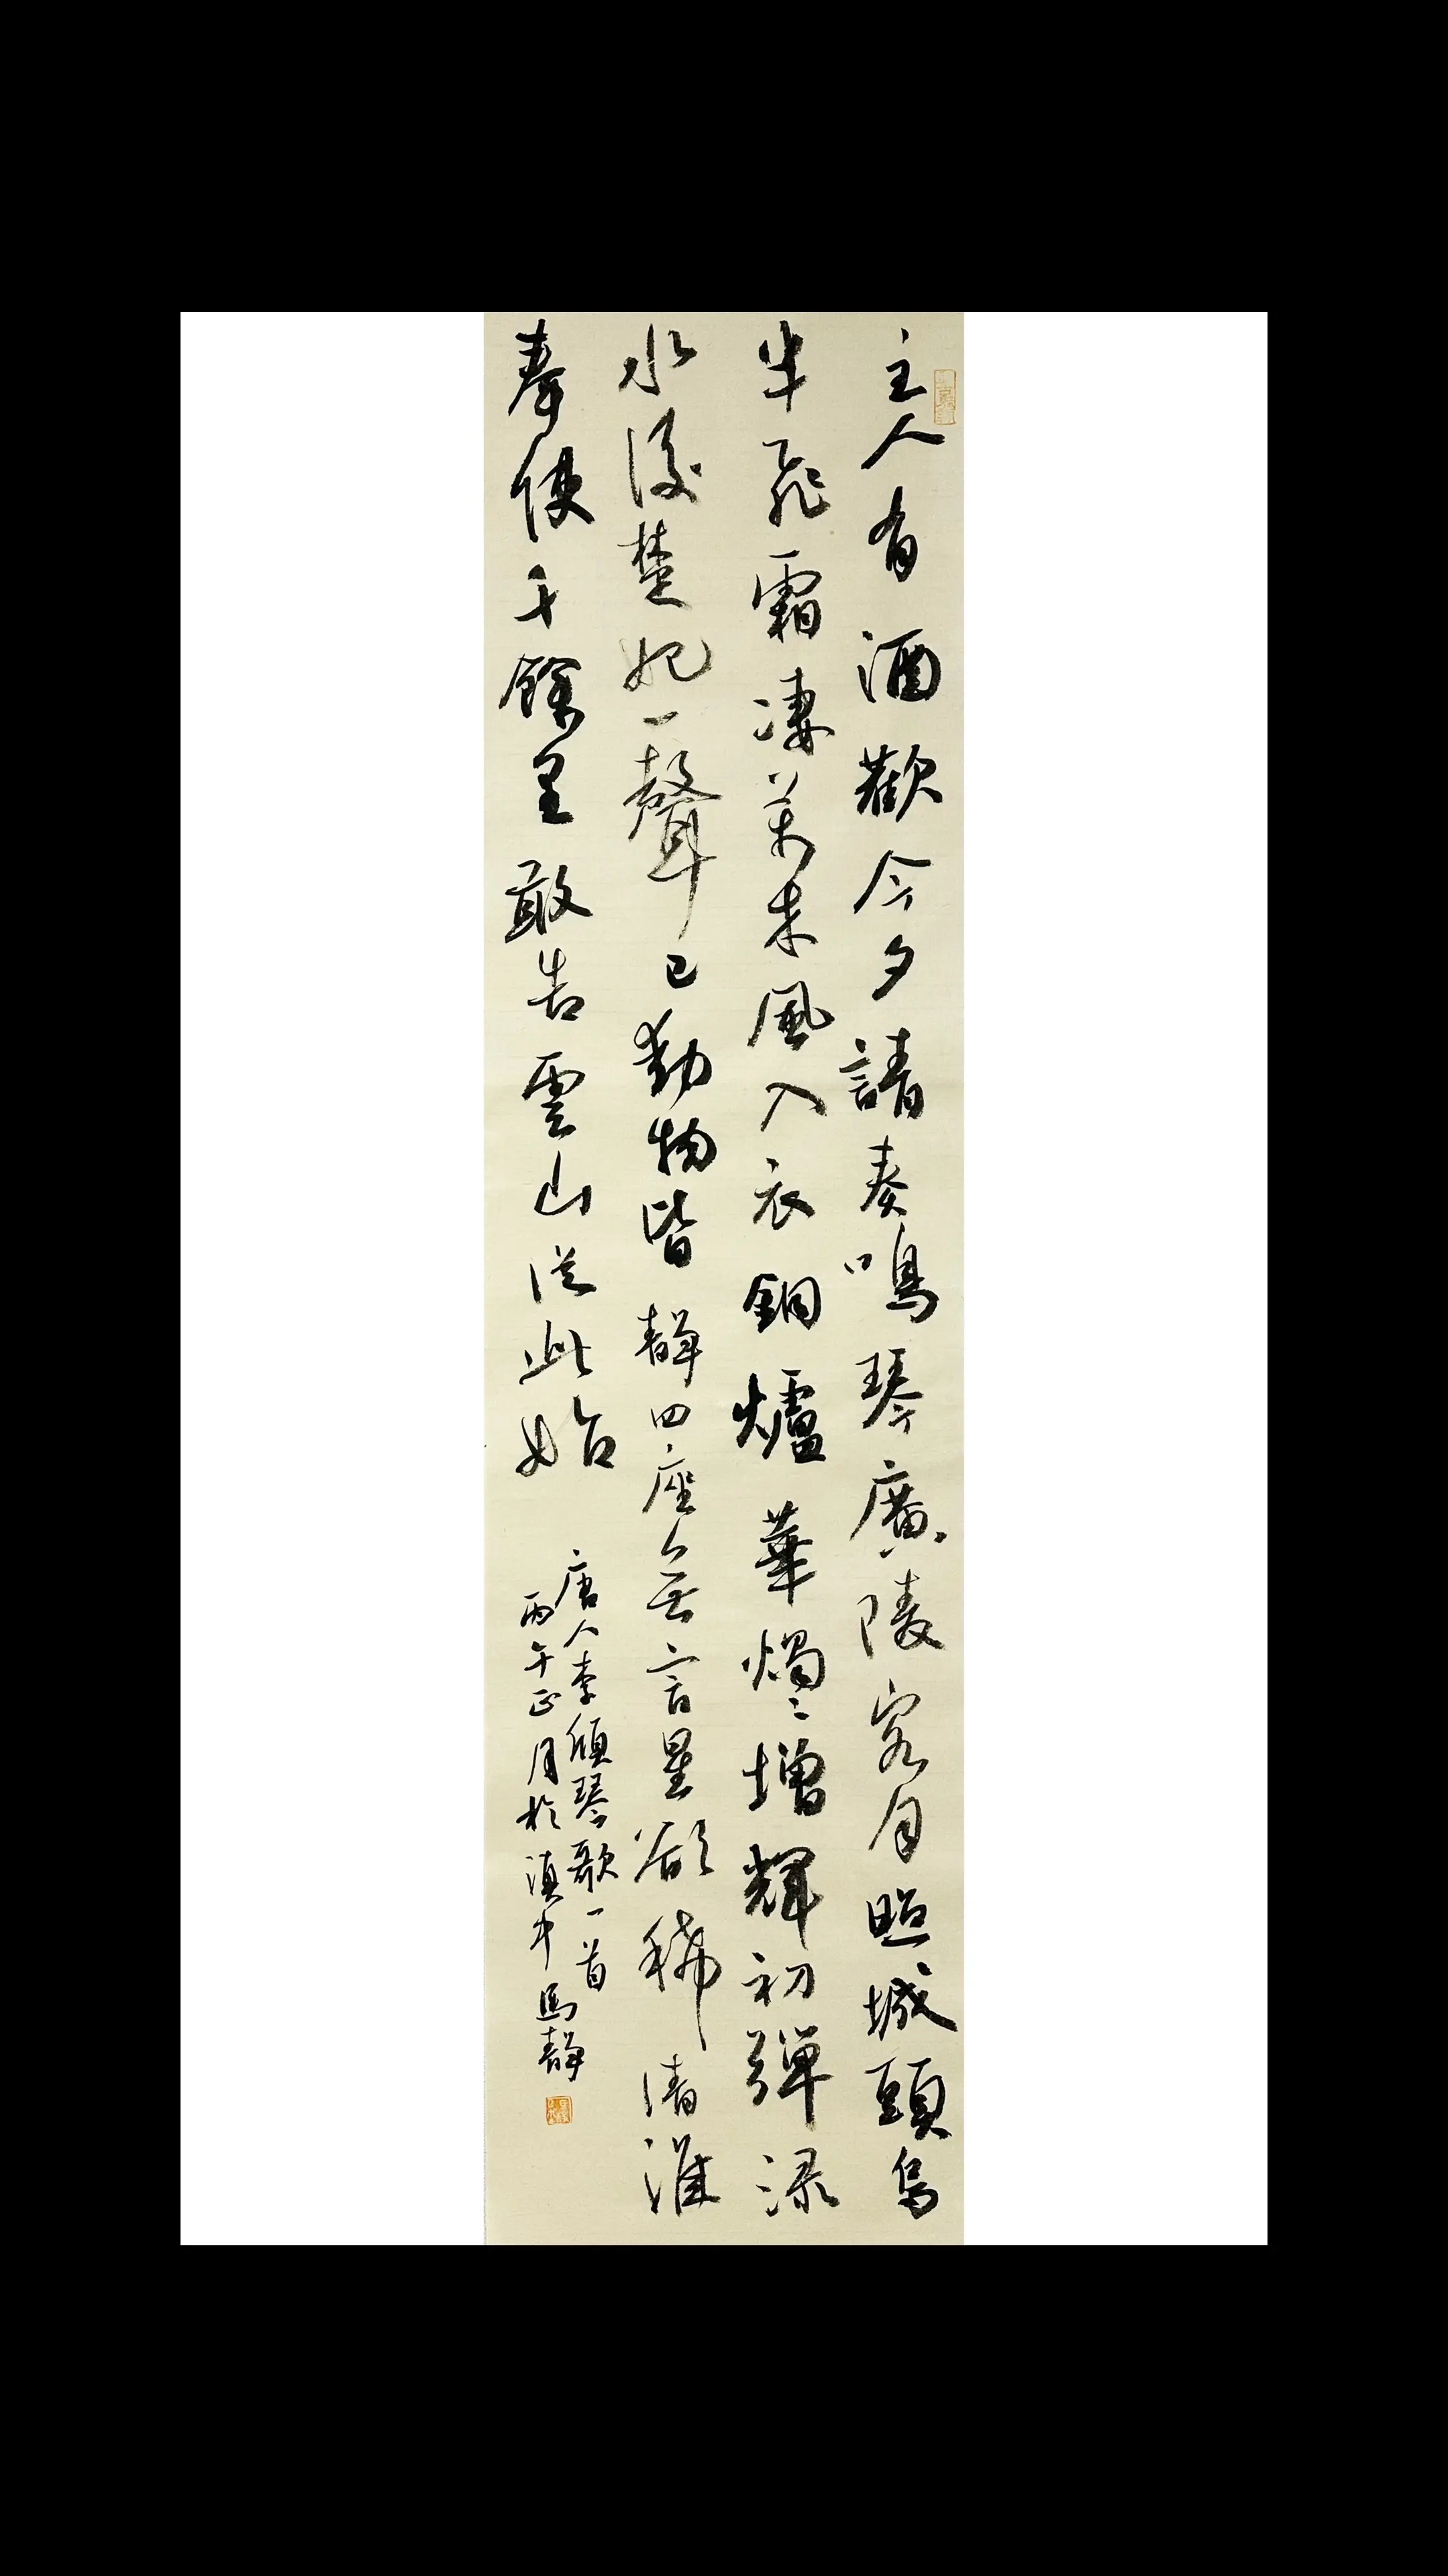 主人有酒歡今夕請奏鳴琴廣陵客月照城頭烏
半飛霜凄萬木風入衣銅爐華燭〻增輝初彈渌
水後楚妃一聲已動物皆靜四座無言星欲稀清淮
奉使千餘里敢告雲山從此始
唐人李頎琴歌一首
丙午正月於滇中馬靜